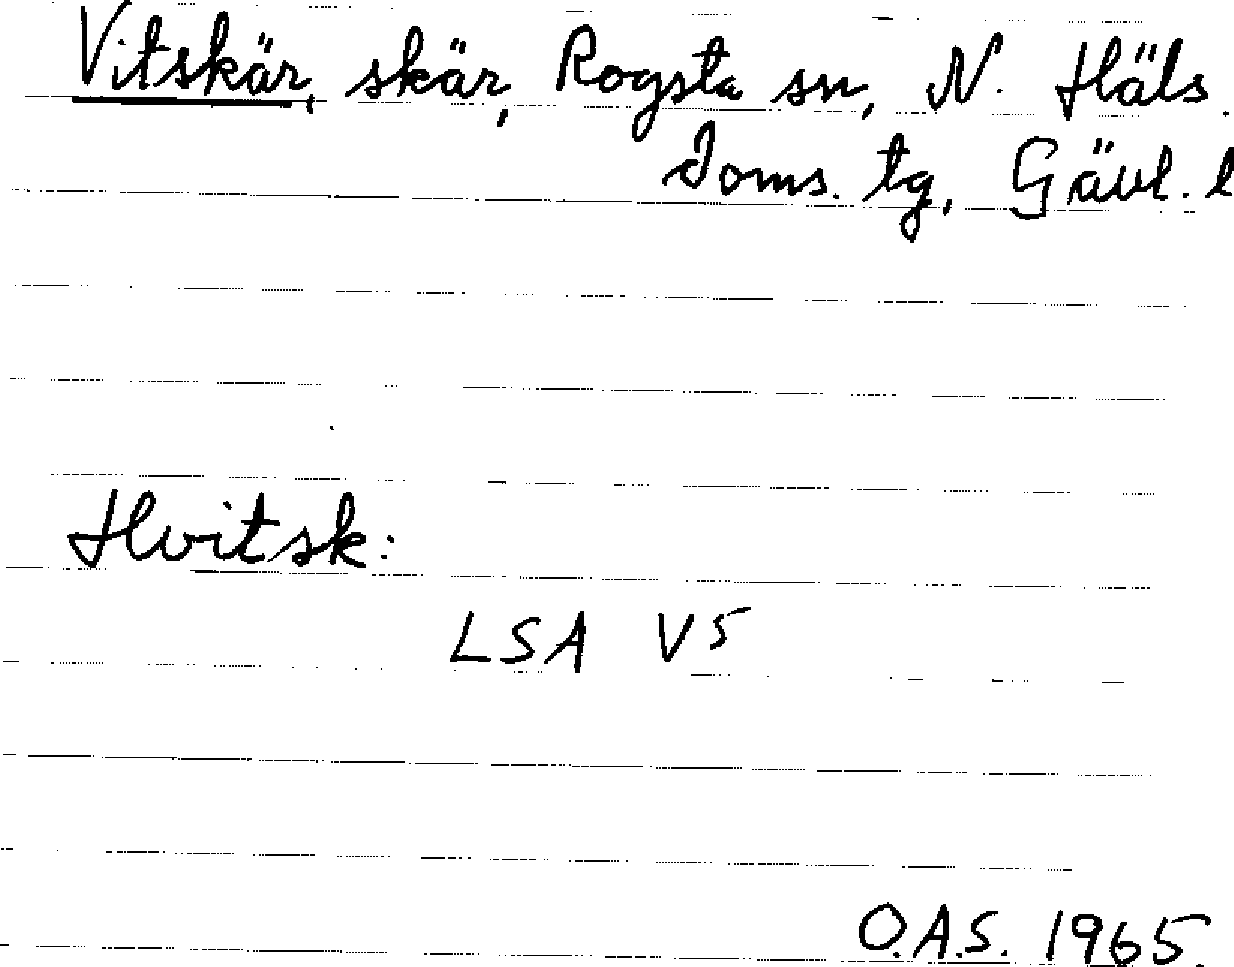 Vitskär, skär, Rogsta sn, N. Häls.
Doms. tg, Gävl. l
Hvitsk:
LSA V5
O.A.S. 1965.